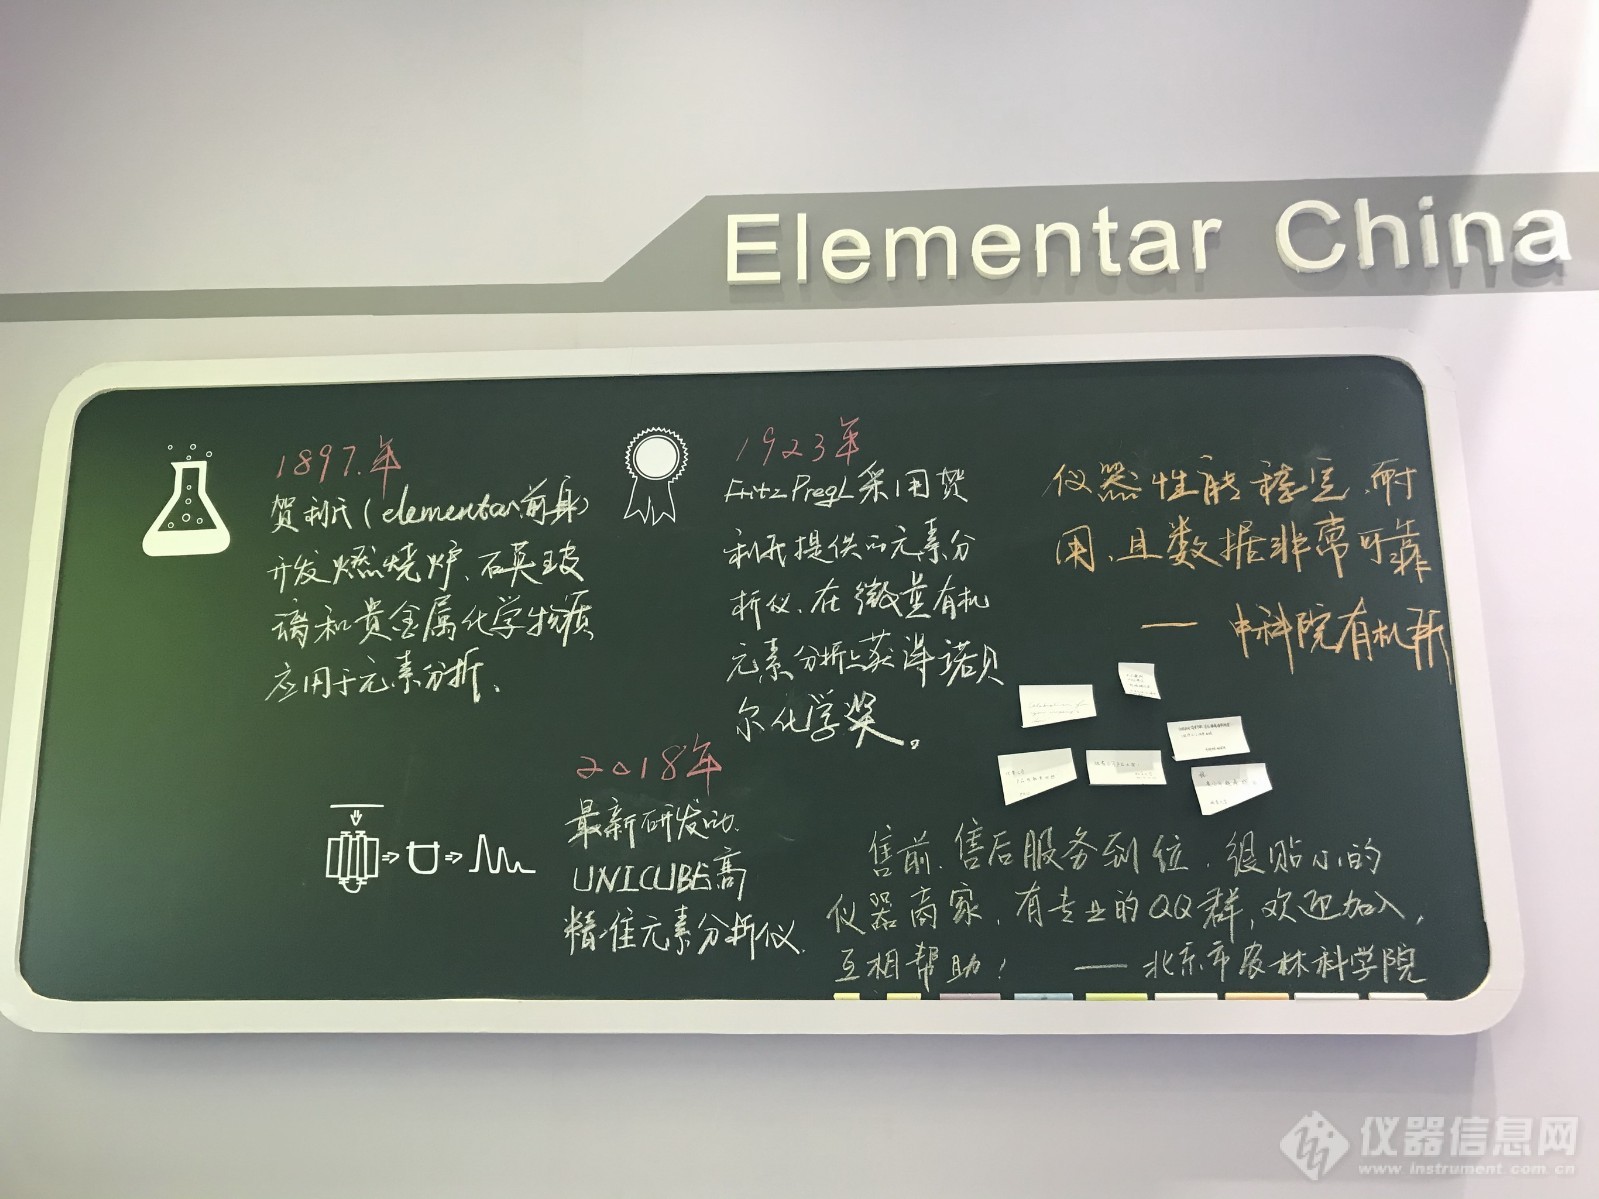 Elementar China
1897.年
贺利氏(elementar前身)
开发燃烧炉、石英玻
璃和贵金属化学物质
应用于元素分析.
1923年
Fritz Pregl采用贺
利氏提供的元素分
析仪、在微量有机
元素分析上获得诺贝
尔化学奖。
2018年
最新研发的.
UNICUBE高
精准元素分析仪.
仪器性能稳定、耐
用、且数据非常可靠
— 中科院有机所
售前、售后服务到位、很贴心的
仪器商家、有专业的QQ群,欢迎加入,
互相帮助!  — 北京市农林科学院
仪器信息网
www.instrument.com.cn